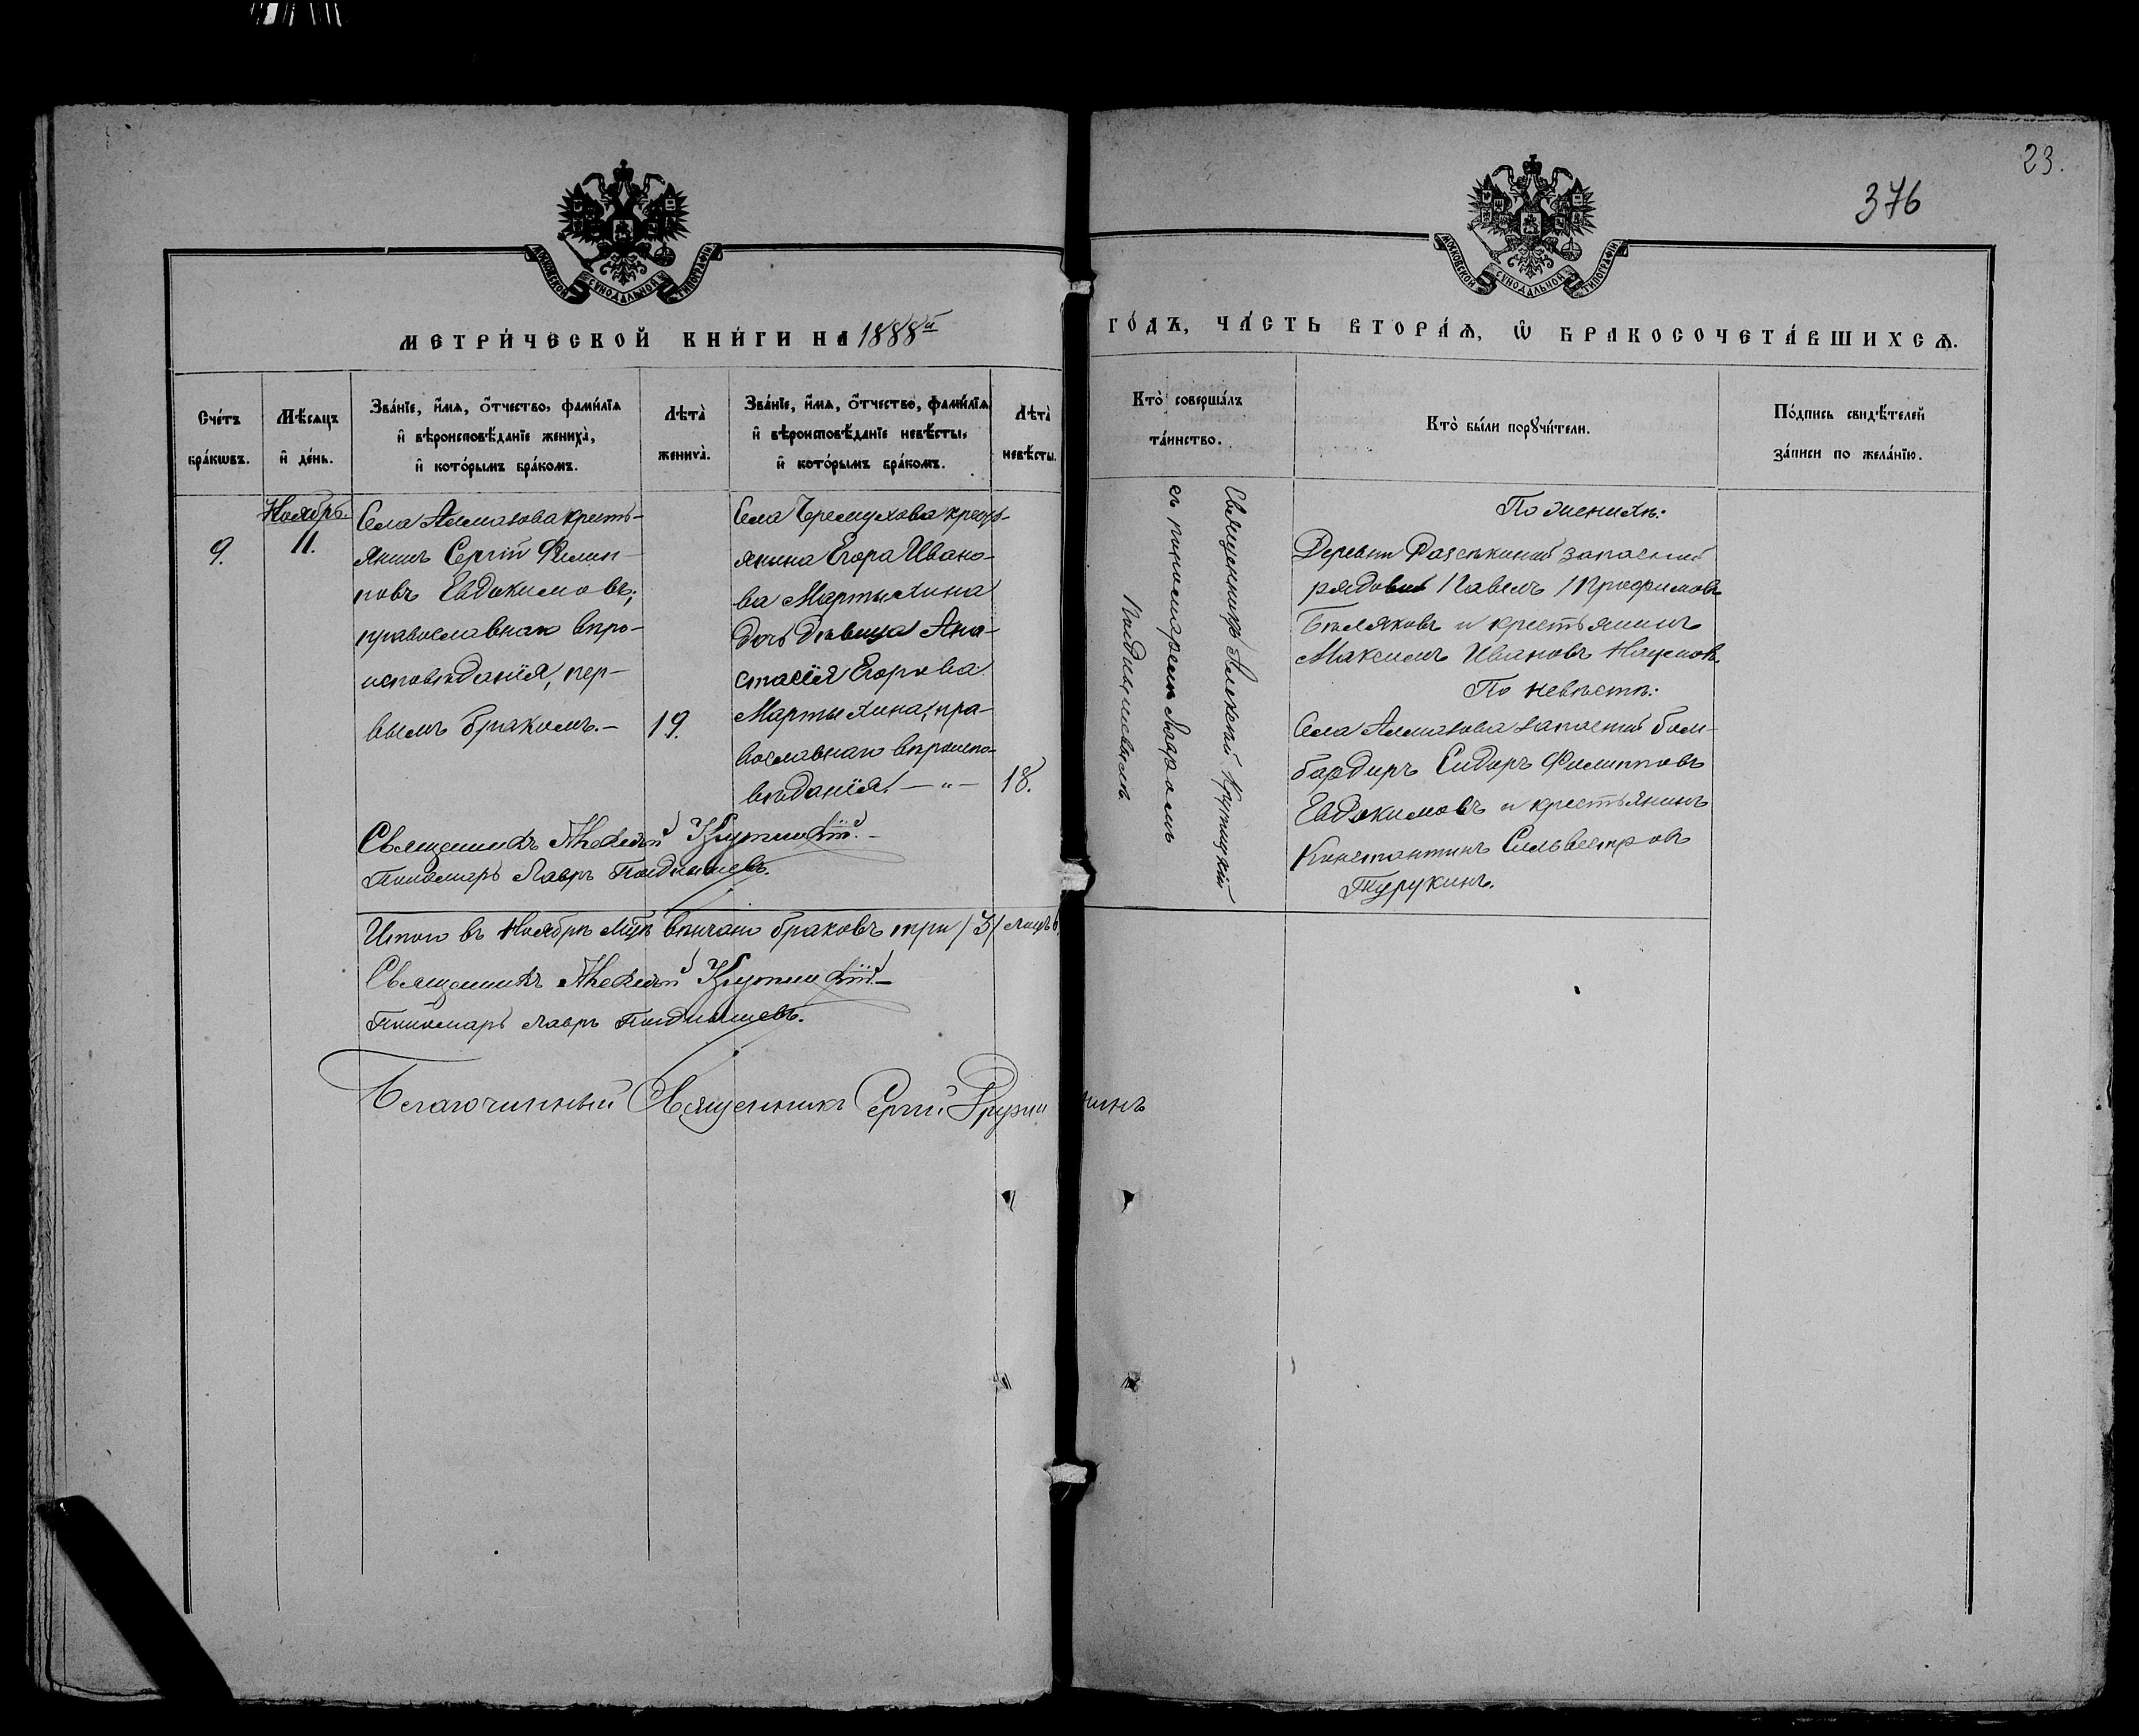 23.
376
МОСКОВСКОЙ СУНОДАЛЬНОЙ ТИПОГРАФІИ
МОСКОВСКОЙ СУНОДАЛЬНОЙ ТИПОГРАФІИ
МЕТРИ́ЧЕСКОЙ КНИ́ГИ НА 1888й
ГО́ДЪ, ЧА́СТЬ ВТОРА́Ѧ, Ѿ БРАКОСОЧЕТА́ВШИХСѦ.
Сче́тъ
бра́кѡвъ.
Мѣ́сяцъ
и҆ де́нь.
Зва́нїе, и҆́мѧ, ѻ҆́тчество, фами́лїѧ
и҆ вѣроисповѣ́данїе жениха̀,
и҆ кото́рымъ бра́комъ.
Лѣта̀
жениха̀.
Зва́нїе, и҆́мѧ, ѻ҆́тчество, фами́лїѧ
и҆ вѣроисповѣ́данїе невѣ́сты,
и҆ кото́рымъ бра́комъ.
Лѣта̀
невѣ́сты.
Кто̀ соверша́лъ
та́инство.
Кто̀ бы́ли порꙋчи́тели.
По́дпись свидѣ́телей
за́писи по жела́нїю.
9.
Ноябрь.
11.
Села Алмазова кресть-
янинъ Сергій Филип-
повъ Евдокимовъ,
православнаго вѣро-
исповѣданія, пер-
вымъ бракомъ.-
19.
Села Черемухова кресть-
янина Егора Ивано-
ва Мартыхина
дочь дѣвица Ана-
стасія Егорова
Мартыхина, пра-
вославнаго вѣроиспо-
вѣданія. — „ —
18.
Священникъ Алексій Крутицкій
съ пономаремъ Лавромъ
Поздышевымъ.
По женихѣ:
Деревни запасный
рядовый Павелъ Трофимовъ
Бѣляковъ и крестьянинъ
Максимъ Ивановъ Наумовъ.
По невѣстѣ:
Села Алмазова запасный бом-
бардиръ Сидоръ Филипповъ
Евдокимовъ и крестьянинъ
Константинъ Сильвестровъ
Турукинъ.
Священникъ Алексій Крутицкій.-
Пономарь Лавръ Поздышевъ.
Итого въ Ноябрѣ мцѣ вѣнчано браковъ три /3/
Священникъ Алексій Крутицкій.-
Пономарь Лавръ Поздышевъ.
Благочинный Священникъ Сергій